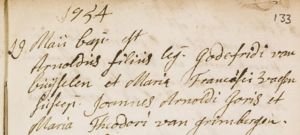 1754
133
19 Maii bap: est
Arnoldus filius leg: Godefridi van
buÿselen et Maria Francisci
Joannes Arnoldi Goris et
Maria Theodori van grimbergen.